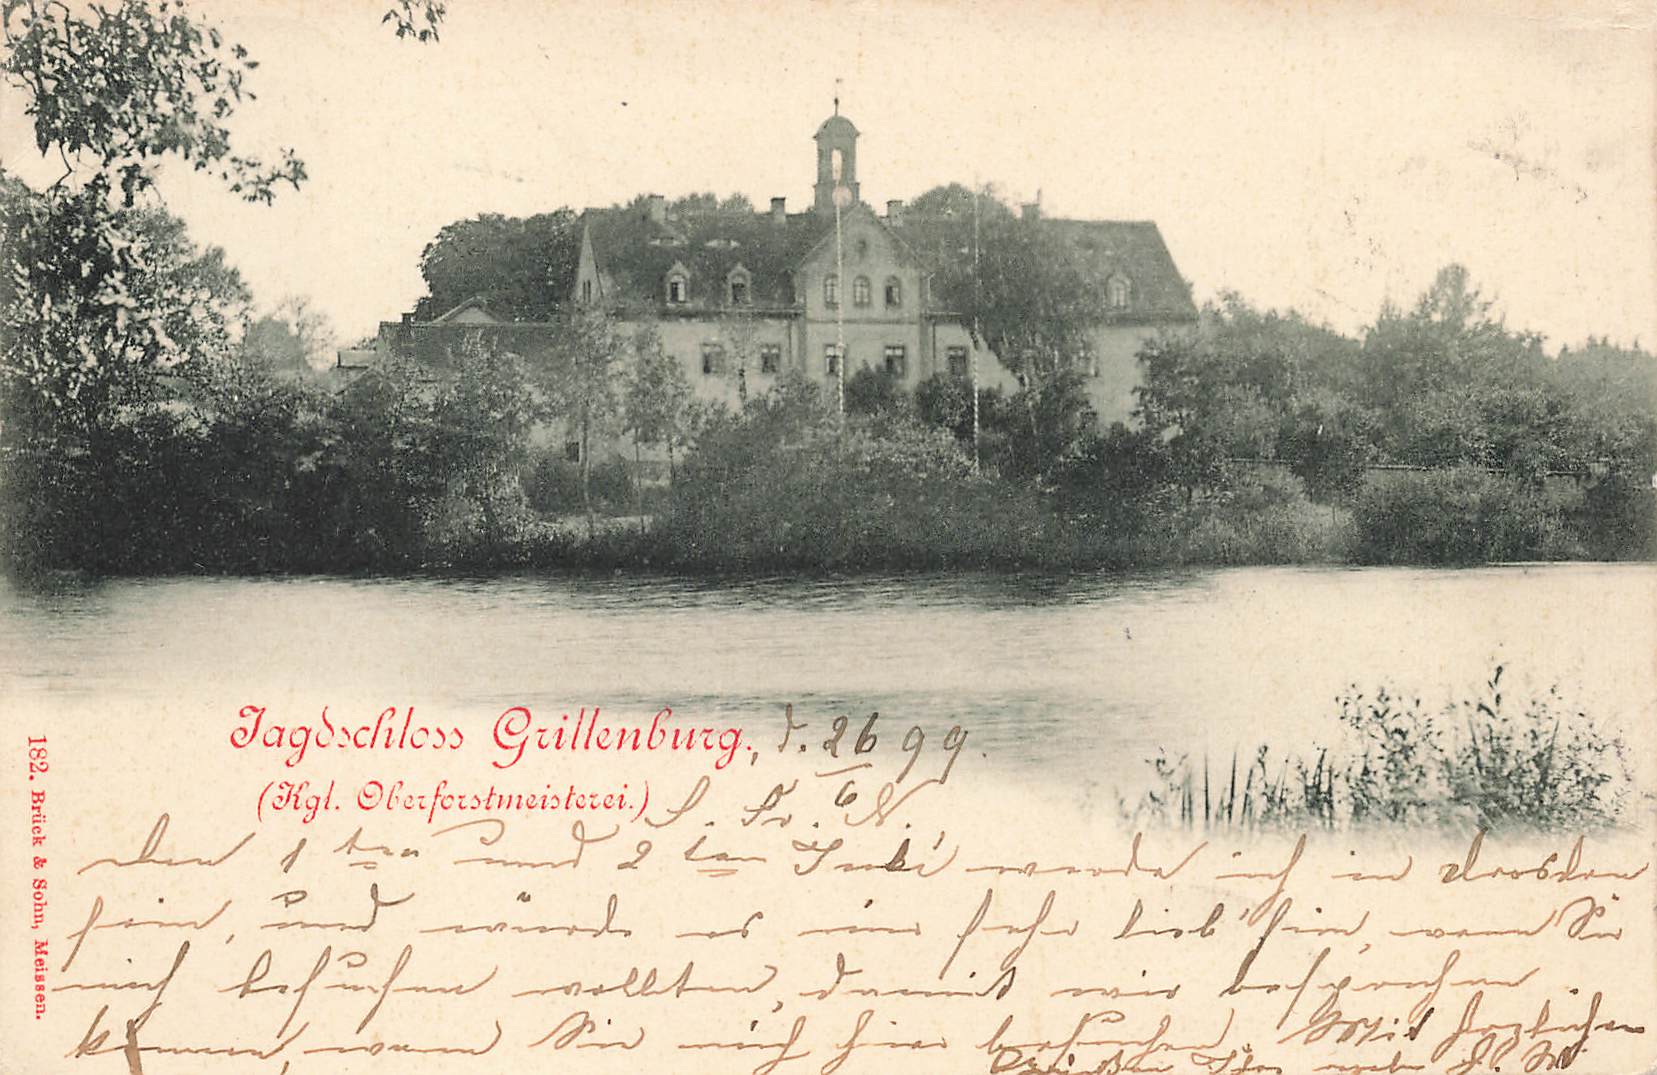 Jagdschloss Grillenburg., d. 26/6 99.
(Kgl. Oberforstmeisterei.)
182. Brück & Sohn, Meissen.
Den 1ten und 2ten Juli werde ich in Dresden
sein, und würde es mir sehr lieb sein, wenn Sie
mich besuchen wollten, damit wir besprechen
können, wann Sie mich hier besuchen. Mit herzlichen
Grüßen Ihr